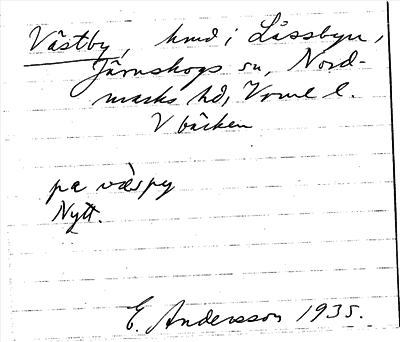 Västby, hmd i Låssbyn,
Järnskogs sn, Nord-
marks hd, Vrml l.
V bäcken
pa væspy
Nytt.
E. Andersson 1935.